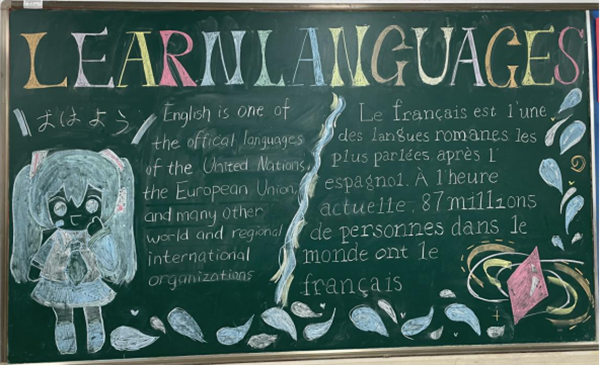 LEARN LANGUAGES
おはよう
English is one of
the offical languages
of the United Nations,
the European Union,
and many other
world and regional
international
organizations
Le français est l'une
des langues romanes les
plus parlées après l'
espagnol. À l'heure
actuelle, 87 millions
de personnes dans le
monde ont le
français